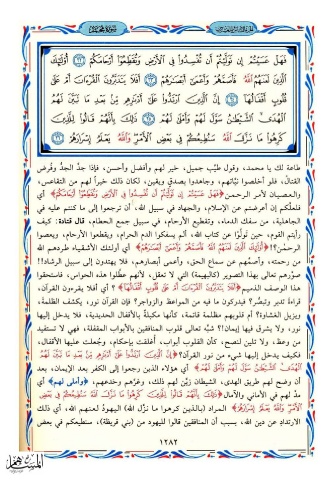 فَهَلْ عَسَيْتُمْ إِن تَوَلَّيْتُمْ أَن تُفْسِدُوا۟ فِى ٱلْأَرْضِ وَتُقَطِّعُوٓا۟ أَرْحَامَكُمْ ﴿٢٢﴾ أُو۟لَٰٓئِكَ
ٱلَّذِينَ لَعَنَهُمُ ٱللَّهُ فَأَصَمَّهُمْ وَأَعْمَىٰٓ أَبْصَٰرَهُمْ ﴿٢٣﴾ أَفَلَا يَتَدَبَّرُونَ ٱلْقُرْءَانَ أَمْ عَلَىٰ
قُلُوبٍ أَقْفَالُهَآ ﴿٢٤﴾ إِنَّ ٱلَّذِينَ ٱرْتَدُّوا۟ عَلَىٰٓ أَدْبَٰرِهِم مِّنۢ بَعْدِ مَا تَبَيَّنَ لَهُمُ
ٱلْهُدَى ٱلشَّيْطَٰنُ سَوَّلَ لَهُمْ وَأَمْلَىٰ لَهُمْ ﴿٢٥﴾ ذَٰلِكَ بِأَنَّهُمْ قَالُوا۟ لِلَّذِينَ
كَرِهُوا۟ مَا نَزَّلَ ٱللَّهُ سَنُطِيعُكُمْ فِى بَعْضِ ٱلْأَمْرِ وَٱللَّهُ يَعْلَمُ إِسْرَارَهُمْ ﴿٢٦﴾
طاعة لك يا محمد، وقول طيّب جميل، خير لهم وأفضل وأحسن، فإذا جدَّ الجدُّ وفُرض
القتال، فلو أخلصوا نيّاتهم، وجاهدوا بصدقٍ ويقين، لكان ذلك خيراً لهم من التقاعس،
والعصيان لأمر الرحمن ﴿فَهَلْ عَسَيْتُمْ إِن تَوَلَّيْتُمْ أَن تُفْسِدُوا۟ فِى ٱلْأَرْضِ وَتُقَطِّعُوٓا۟ أَرْحَامَكُمْ﴾ أي
فلعلَّكم إن أعرضتم عن الإسلام، والجهاد في سبيل الله، أن ترجعوا إلى ما كنتم عليه في
الجاهلية، من سفك الدماء، وتقطيع الأرحام، في سبيل جمع الحطام. قال قتادة: كيف
رأيتم القوم، حين تولَّوْا عن كتاب الله، ألم يسفكوا الدم الحرام، ويقطعوا الأرحام، ويعصوا
الرحمٰن؟! ﴿أُو۟لَٰٓئِكَ ٱلَّذِينَ لَعَنَهُمُ ٱللَّهُ فَأَصَمَّهُمْ وَأَعْمَىٰٓ أَبْصَٰرَهُمْ﴾ أي أولئك الأشقياء طردهم الله
من رحمته، وأصمَّهم عن سماع الحق، وأعمى أبصارهم، فلا يهتدون إلى سبيل الرشاد!!
صوّرهم تعالى بهذا التصوير (كالبهيمة) التي لا تعقل، لأنهم عطّلوا هذه الحواس، فاستحقوا
هذا الوصف الذميم ﴿أَفَلَا يَتَدَبَّرُونَ ٱلْقُرْءَانَ أَمْ عَلَىٰ قُلُوبٍ أَقْفَالُهَآ﴾؟ أي أفلا يقرءون القرآن،
قراءة تدبر وتبصُّر؟ فيدركون ما فيه من المواعظ والزواجر؟ فإن القرآن نور، يكشف الظلمة،
ويزيل الغشاوة؟ أم قلوبهم مظلمة قاتمة، كأنها مكبلة بالأقفال الحديدية، فلا يدخل إليها
نور، ولا يشرق فيها إيمان؟! شبَّه تعالى قلوب المنافقين بالأبواب المقفلة، فهي لا تستفيد
من وعظ، ولا تلين لنصح، كأن القلوب أبواب، أغلقت بإحكام، وجُعلت عليها الأقفال،
فكيف يدخل إليها شيء من نور القرآن؟ ﴿إِنَّ ٱلَّذِينَ ٱرْتَدُّوا۟ عَلَىٰٓ أَدْبَٰرِهِم مِّنۢ بَعْدِ مَا تَبَيَّنَ لَهُمُ
ٱلْهُدَى ٱلشَّيْطَٰنُ سَوَّلَ لَهُمْ وَأَمْلَىٰ لَهُمْ﴾ أي هؤلاء الذين رجعوا إلى الكفر بعد الإيمان، بعد
أن وضح لهم طريق الهدى، الشيطان زيّن لهم ذلك، وغرّهم وخدعهم، ﴿وأملى لهم﴾ أي
مدَّ لهم في الأماني والآمال ﴿ذَٰلِكَ بِأَنَّهُمْ قَالُوا۟ لِلَّذِينَ كَرِهُوا۟ مَا نَزَّلَ ٱللَّهُ سَنُطِيعُكُمْ فِى بَعْضِ
ٱلْأَمْرِ وَٱللَّهُ يَعْلَمُ إِسْرَارَهُمْ﴾ المراد (بالذين كرهوا ما نزّل الله) اليهودُ لعنهم الله، أي ذلك
الارتداد عن دين الله، بسبب أن المنافقين قالوا لليهود من (بني قريظة)، سنطيعكم في بعض
١٢٨٢